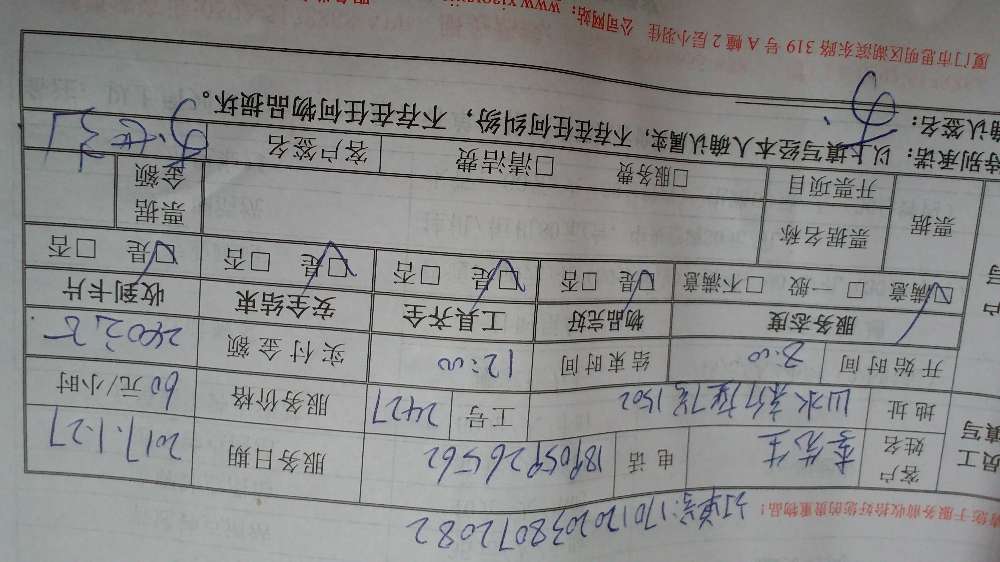 订单号:1701202038072082
请您于服务前收拾好您的贵重物品!
员工填写
客户姓名 李先生 电话 18905926562 服务日期 2017.1.27
地址 工号 2427 服务价格 60元/小时
开始时间 8:00 结束时间 12:00 实付金额
服务态度 物品完好 工具齐全 安全结束 收到卡片
☑满意 □一般 □不满意 ☑是 □否 ☑是 □否 ☑是 □否 ☑是 □否
票据 票据名称 票据金额
开票项目 □服务费 □清洁费 客户签名
特别承诺:以上填写经本人确认属实,不存在任何纠纷,不存在任何物品损坏。
确认签名:
厦门市思明区湖滨东路 319 号 A 幢 2 层小羽佳 公司网站: